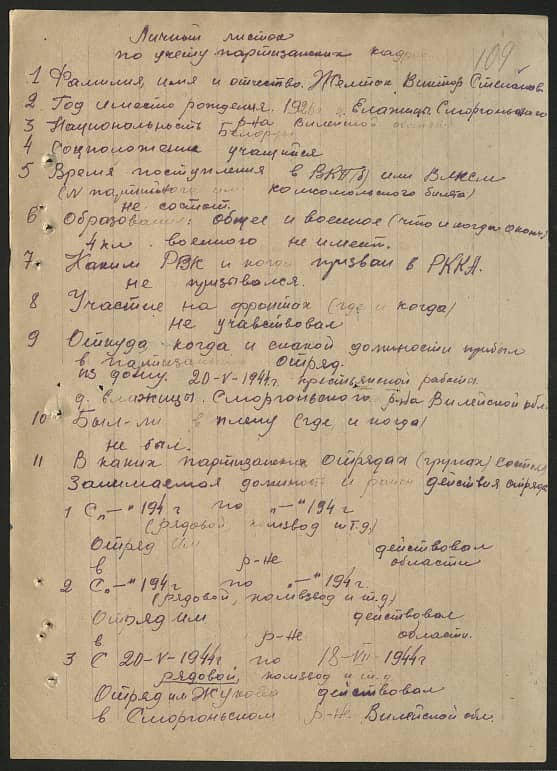 Личный листок
по учету партизанских кадров
109
1 Фамилия, имя и отчество. Желток Виктор Степанов
2 Год и место рождения. 192 г. Влажицы Сморгоньского
р-на Вилейской
3 Национальность Белорус
4 Соцположение учащийся
5 Время поступления в ВКП(б) или ВЛКСМ
(N партийного или комсомольского билета)
не состоит.
6 Образование: общее и военное (что и когда окончил)
4 кл. военного не имеет.
7 Каким РВК и когда призван в РККА.
не призывался.
8 Участие на фронтах (где и когда)
не учавствовал
9 Откуда, когда и с какой должности прибыл
в партизанский отряд.
из дому. 20-V-1944г. крестьянской работы
д. Влажицы. Сморгоньского р-на Вилейской обл.
10 Был-ли в плену (где и когда)
не был.
11 В каких партизанских отрядах (групах) состоял
Занимаемая должность и район действия отряда
1 С „—" 194 г по „—" 194 г
(рядовой, комвзвод и т.д.)
Отряд им действовал
в р-не области
2 С „—" 194 г по „—" 194 г.
(рядовой, комвзвод и т.д.)
Отряд им действовал
в р-не области.
3 С 20-V-1944г по 18-VII-1944г
рядовой, комвзвод и т.д.
Отряд им Жукова действовал
в Сморгоньском р-не Вилейской обл.